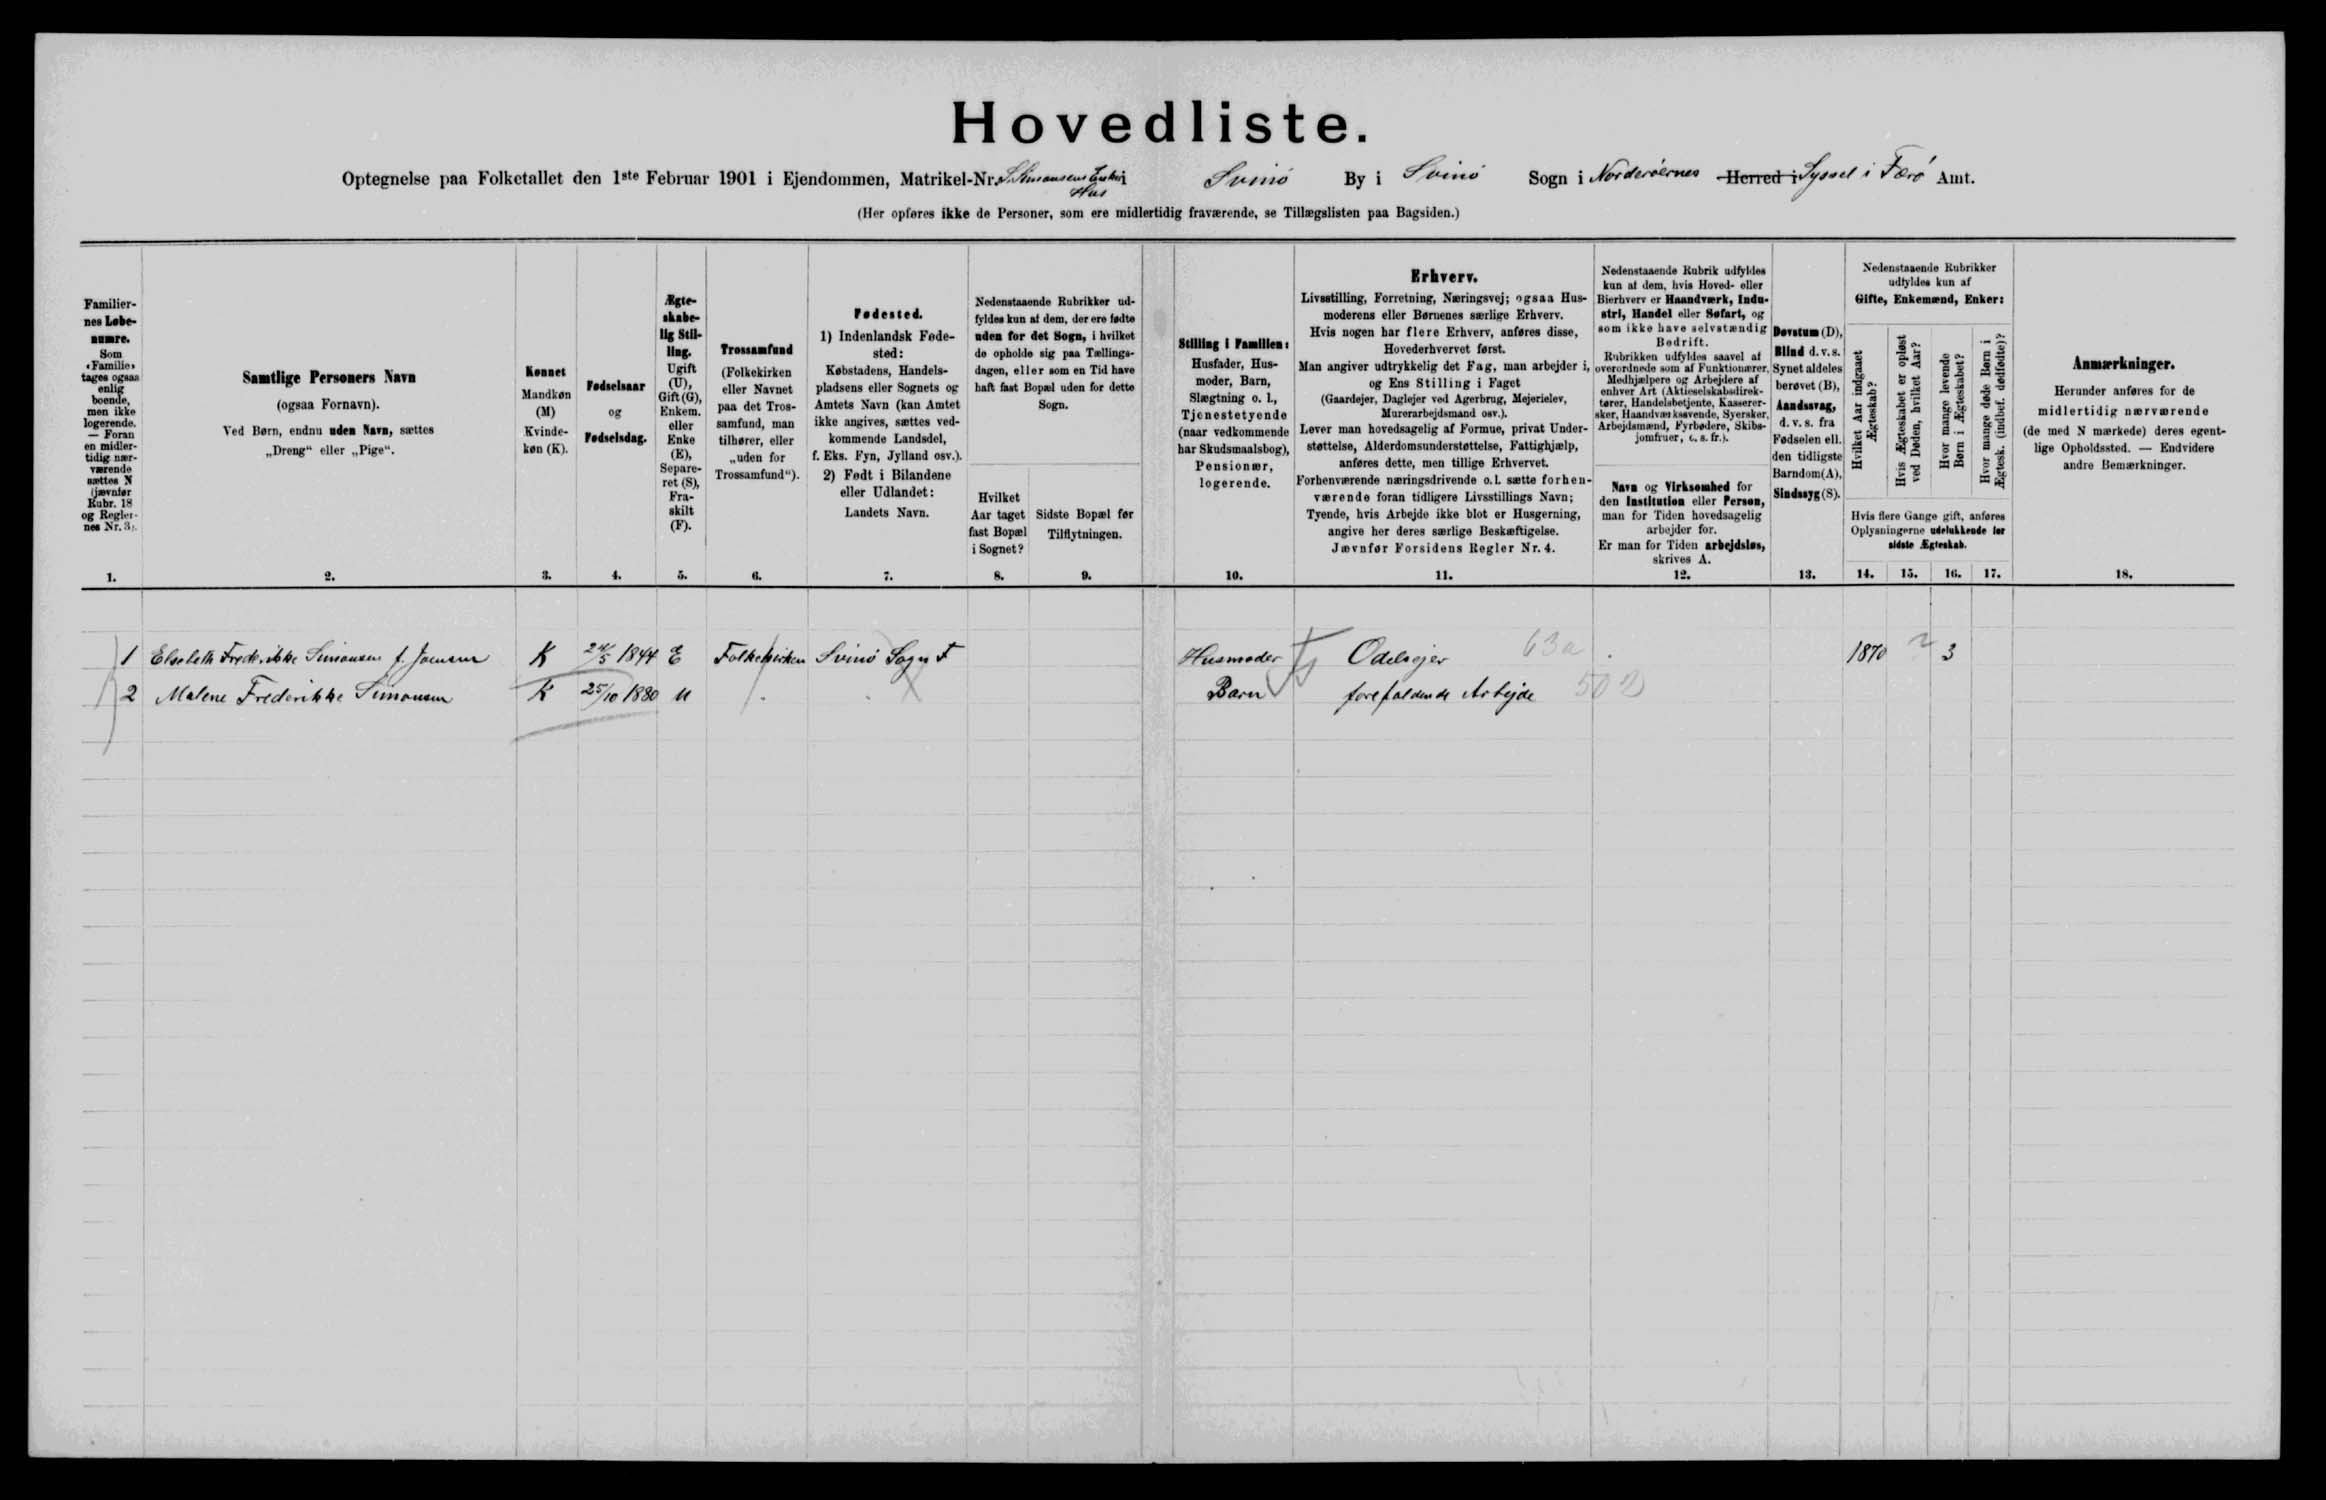 Hovedliste.
Optegnelse paa Folketallet den 1ste Februar 1901 i Ejendommen, Matrikel-Nr. S. Simonsens Enkes Hus i Svinö By i Svinö Sogn i Norderöernes Herred i Syssel i Færö Amt.
(Her opføres ikke de Personer, som ere midlertidig fraværende, se Tillægslisten paa Bagsiden.)
Familier-
nes Løbe-
numre.
Som
«Familie»
tages ogsaa
enlig
boende,
men ikke
logerende.
— Foran
en midler-
tidig nær-
værende
sættes N
(jævnfør
Rubr. 18
og Regler-
nes Nr. 3).
1.
Samtlige Personers Navn
(ogsaa Fornavn).
Ved Børn, endnu uden Navn, sættes
„Dreng“ eller „Pige“.
2.
Kønnet
Mandkøn
(M)
Kvinde-
køn (K).
3.
Fødselsaar
og
Fødselsdag.
4.
Ægte-
skabe-
lig Stil-
ling.
Ugift
(U),
Gift (G),
Enkem.
eller
Enke
(E),
Separe-
ret (S),
Fra-
skilt
(F).
5.
Trossamfund
(Folkekirken
eller Navnet
paa det Tros-
samfund, man
tilhører, eller
„uden for
Trossamfund“).
6.
Fødested.
1) Indenlandsk Føde-
sted:
Købstadens, Handels-
pladsens eller Sognets og
Amtets Navn (kan Amtet
ikke angives, sættes ved-
kommende Landsdel,
f. Eks. Fyn, Jylland osv.).
2) Født i Bilandene
eller Udlandet:
Landets Navn.
7.
Nedenstaaende Rubrikker ud-
fyldes kun af dem, der ere fødte
uden for det Sogn, i hvilket
de opholde sig paa Tællings-
dagen, eller som en Tid have
haft fast Bopæl uden for dette
Sogn.
Hvilket
Aar taget
fast Bopæl
i Sognet?
8.
Sidste Bopæl før
Tilflytningen.
9.
Stilling i Familien:
Husfader, Hus-
moder, Barn,
Slægtning o. l.,
Tjenestetyende
(naar vedkommende
har Skudsmaalsbog),
Pensionær,
logerende.
10.
Erhverv.
Livsstilling, Forretning, Næringsvej; ogsaa Hus-
moderens eller Børnenes særlige Erhverv.
Hvis nogen har flere Erhverv, anføres disse,
Hovederhvervet først.
Man angiver udtrykkelig det Fag, man arbejder i,
og Ens Stilling i Faget
(Gaardejer, Daglejer ved Agerbrug, Mejerielev,
Murerarbejdsmand osv.).
Lever man hovedsagelig af Formue, privat Under-
støttelse, Alderdomsunderstøttelse, Fattighjælp,
anføres dette, men tillige Erhvervet.
Forhenværende næringsdrivende o. l. sætte forhen-
værende foran tidligere Livsstillings Navn;
Tyende, hvis Arbejde ikke blot er Husgerning,
angive her deres særlige Beskæftigelse.
Jævnfør Forsidens Regler Nr. 4.
11.
Nedenstaaende Rubrik udfyldes
kun af dem, hvis Hoved- eller
Bierhverv er Haandværk, Indu-
stri, Handel eller Søfart, og
som ikke have selvstændig
Bedrift.
Rubrikken udfyldes saavel af
overordnede som af Funktionærer,
Medhjælpere og Arbejdere af
enhver Art (Aktieselskabsdirek-
tører, Handelsbetjente, Kasserer-
sker, Haandværkssvende, Syersker,
Arbejdsmænd, Fyrbødere, Skibs-
jomfruer, o. s. fr.).
Navn og Virksomhed for
den Institution eller Person,
man for Tiden hovedsagelig
arbejder for.
Er man for Tiden arbejdsløs,
skrives A.
12.
Døvstum (D),
Blind d. v. s.
Synet aldeles
berøvet (B),
Aandssvag,
d. v. s. fra
Fødselen ell.
den tidligste
Barndom (A),
Sindssyg (S).
13.
Nedenstaaende Rubrikker
udfyldes kun af
Gifte, Enkemænd, Enker:
Hvilket Aar indgaaet
Ægteskab?
Hvis Ægteskabet er opløst
ved Døden, hvilket Aar?
Hvor mange levende
Børn i Ægteskabet?
Hvor mange døde Børn i
Ægtesk. (indbef. dødfødte)?
Hvis flere Gange gift, anføres
Oplysningerne udelukkende for
sidste Ægteskab.
14. 15. 16. 17.
Anmærkninger.
Herunder anføres for de
midlertidig nærværende
(de med N mærkede) deres egent-
lige Opholdssted. — Endvidere
andre Bemærkninger.
18.
1 Elsebeth Frederikke Simonsen f. Joensen K 24/5 1844 E Folkekirken Svinö Sogn F Husmoder Odelsejer 63a 1870 3
2 Malene Frederikke Simonsen K 25/10 1880 U Barn forefaldende Arbejde